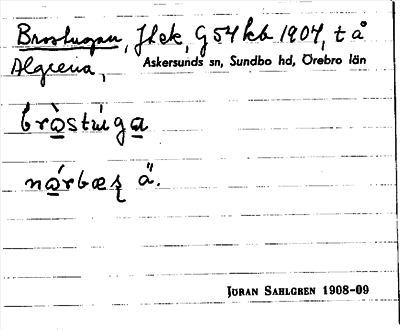 Brostugan, Jlek, G 54 kb 1904, t å
Algrena,
Askersunds sn, Sundbo hd, Örebro län
bròstúga
nórbæʂ ä.
JÖRAN SAHLGREN 1908-09